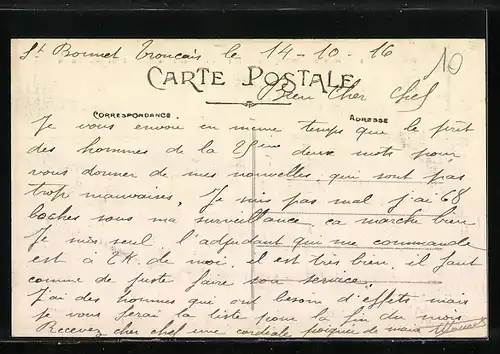 St Bonnet Tronçais le 14-10-16
10
CARTE POSTALE
Bien Cher Chef
CORRESPONDANCE
ADRESSE
Je vous envoie en meme temps que le prêt
des hommes de la 25eme deux mots pour
vous donner de mes nouvelles, qui sont pas
trop mauvaises, Je suis pas mal j'ai 68
boches sous ma surveillance, ça marche bien
Je suis seul, l'adjudant qui me commande
est à 2K. de moi, il est très bien, il faut
comme de juste faire son service.
J'ai des hommes qui ont besoin d'effets mais
je vous ferai la liste pour la fin du mois
Recevez cher chef une cordiale poignée de main